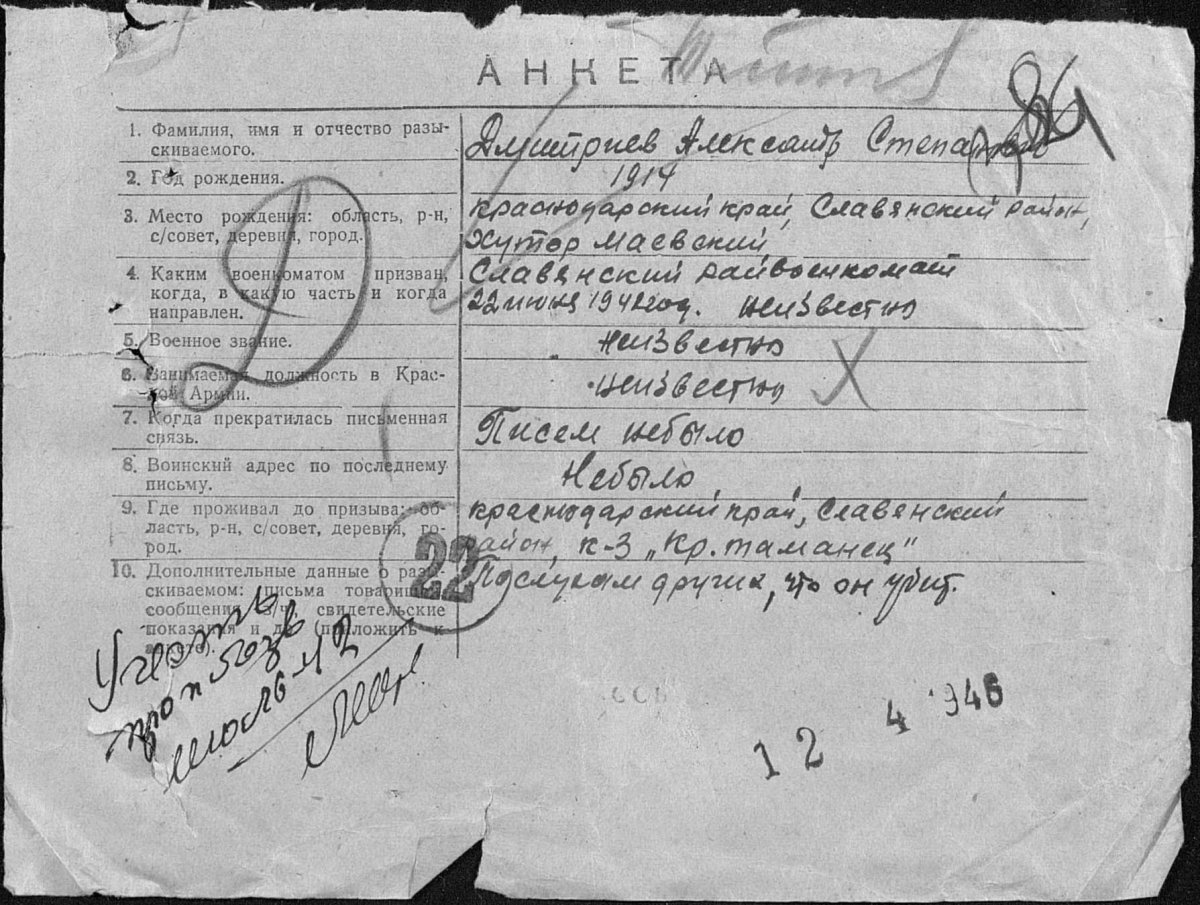 АНКЕТА
84
1. Фамилия, имя и отчество разы-
скиваемого.
Дмитриев Александр Степанович
2. Год рождения.
1914
3. Место рождения: область, р-н,
с/совет, деревня, город.
Краснодарский край, Славянский район,
Хутор Маевский
4. Каким военкоматом призван,
когда, в какую часть и когда
направлен.
Славянский райвоенкомат
22 июня 1942 год. Неизвестно
5. Военное звание.
Неизвестно
6. Занимаемая должность в Крас-
ной Армии.
Неизвестно
7. Когда прекратилась письменная
связь.
Писем небыло
8. Воинский адрес по последнему
письму.
Небыло
9. Где проживал до призыва: об-
ласть, р-н, с/совет, деревня, го-
род.
Краснодарский край, Славянский
район, к-з „Кр. таманец"
10. Дополнительные данные о разы-
скиваемом: письма товарищей,
сообщения в/ч, свидетельские
показания и др. (приложить к
анкете).
Послухам других, что он убит.
Д
22
Учесть
проп без в
июль 42
12 4 946